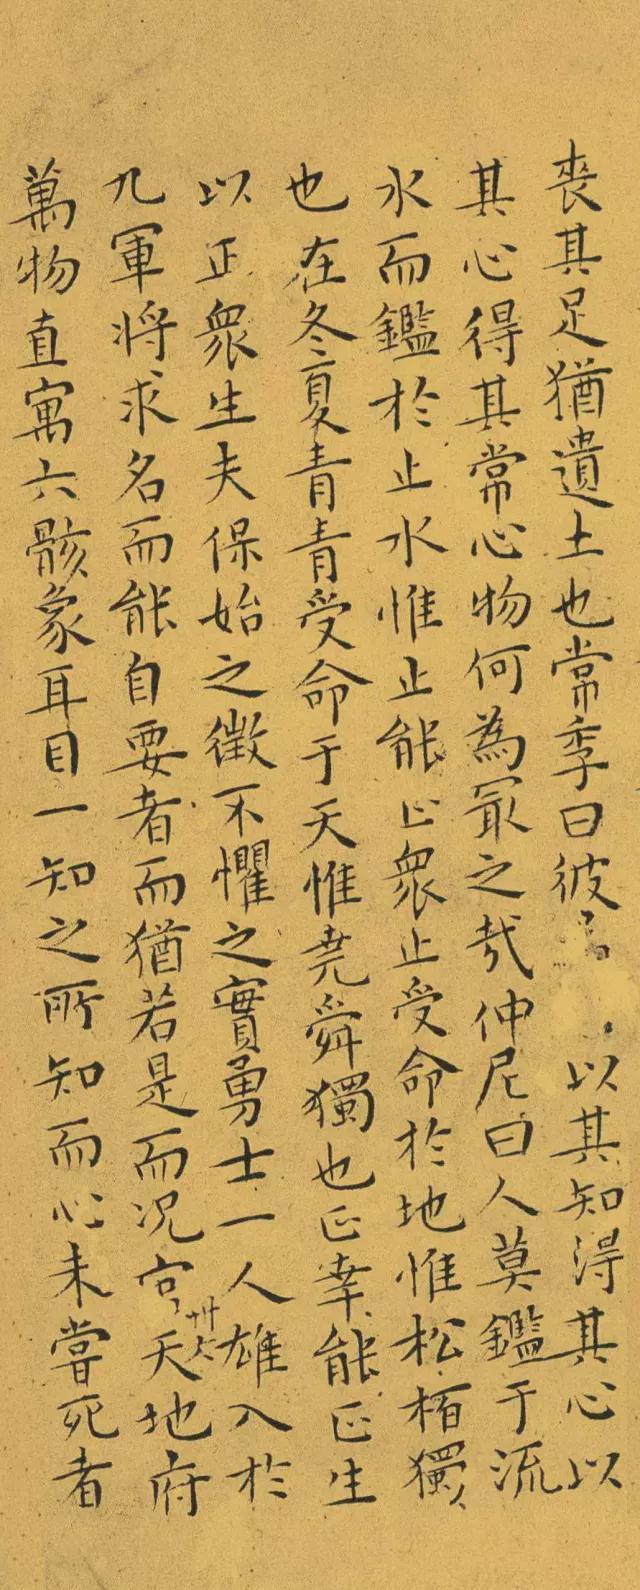 喪其足猶遺土也常季曰彼以其知得其心以
其心得其常心物何為冣之哉仲尼曰人莫鑑于流
水而鑑於止水惟止能止衆止受命於地惟松栢獨
也在冬夏青青受命于天惟堯舜獨也正幸能正生
以正衆生夫保始之徵不懼之實勇士一人雄入於
九軍将求名而能自要者而猶若是而况官天地府
萬物直寓六骸象耳目一知之所知而心未嘗死者